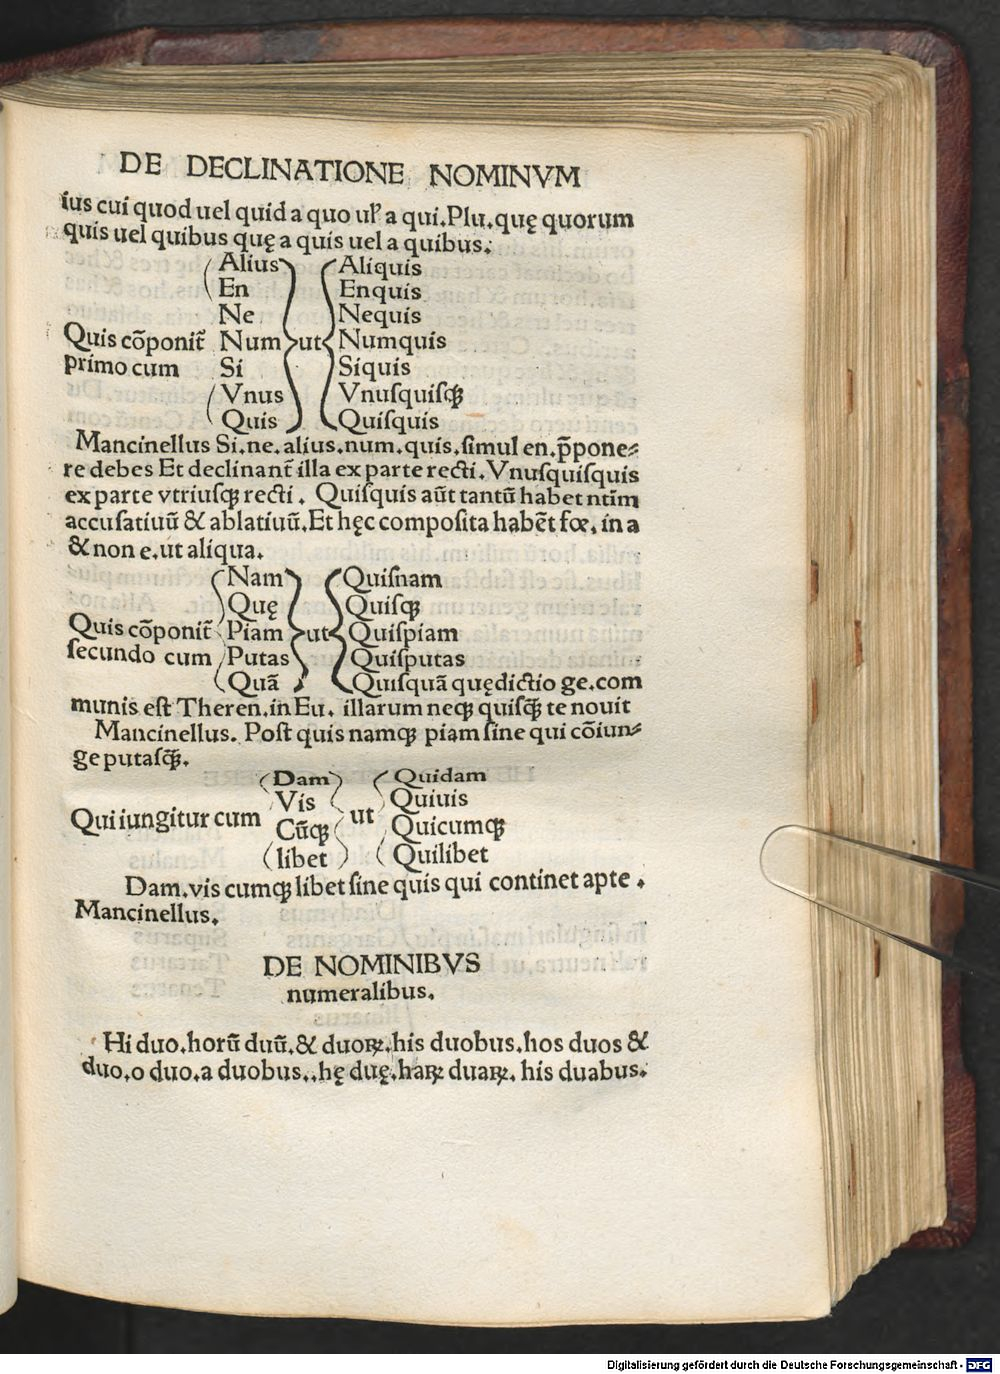 DE DECLINATIONE NOMINVM
ius cui quod uel quid a quo ul' a qui.Plu.quę quorum
quis uel quibus quę a quis uel a quibus.
Alius Aliquis
En Enquis
Ne Nequis
Quis cõponit̃ Num ut Numquis
primo cum Si Siquis
Vnus Vnuſquiſqꝫ
Quis Quiſquis
Mancinellus Si.ne.alius.num.quis.ſimul en.p̃pone⸗
re debes Et declinant̃ illa ex parte recti.Vnuſquiſquis
ex parte vtriuſqꝫ recti. Quiſquis aũt tantũ habet ntĩm
accuſatiuũ & ablatiuũ.Et hęc compoſita habẽt fœ.in a
& non e.ut aliqua.
Nam Quiſnam
Quę Quiſqꝫ
Quis cõponit̃ Piam ut Quiſpiam
ſecundo cum Putas Quiſputas
Quã Quiſquã quędictio ge.com
munis eſt Theren.in Eu. illarum neqꝫ quiſqꝫ̃ te nouit
Mancinellus. Poſt quis namqꝫ piam ſine qui cõiun⸗
ge putaſqꝫ̃.
Dam Quidam
Vis Quiuis
Qui iungitur cum Cũqꝫ ut Quicumqꝫ
libet Quilibet
Dam.vis cumqꝫ libet ſine quis qui continet apte.
Mancinellus.
DE NOMINIBVS
numeralibus.
Hi duo.horũ duũ.& duoꝝ.his duobus.hos duos &
duo.o duo.a duobus..hę duę.haꝝ duaꝝ. his duabus.
Digitalisierung gefördert durch die Deutsche Forschungsgemeinschaft - DFG